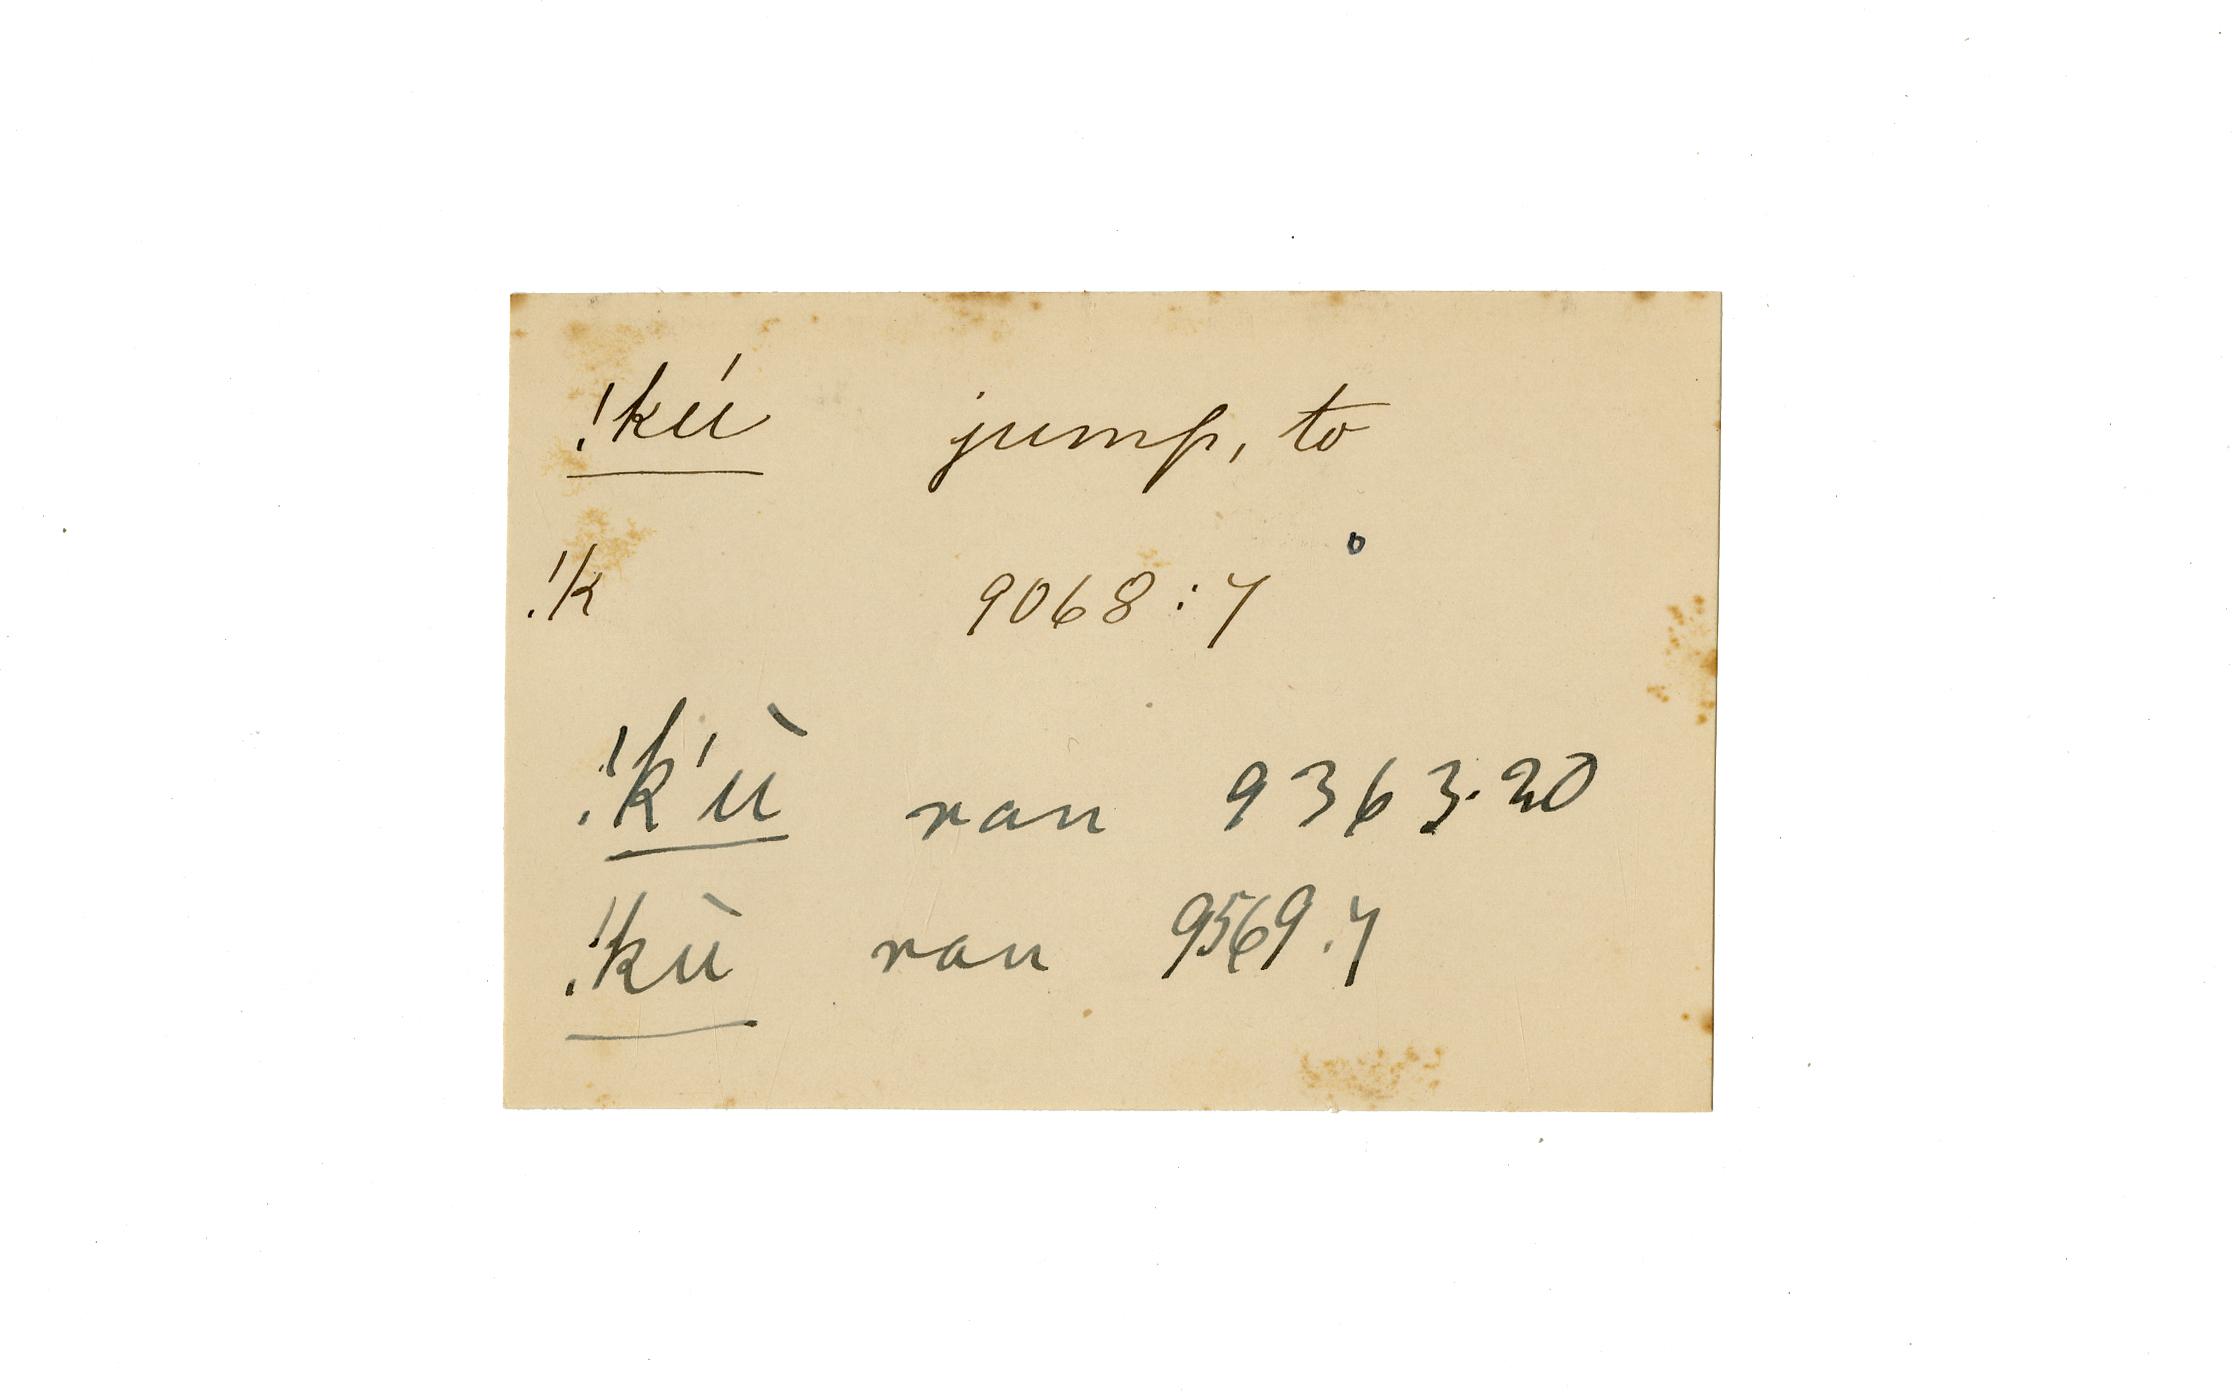 !kú jump, to
!k 9068:7
!k'ù ran 9363.20
!kù ran 9569.7